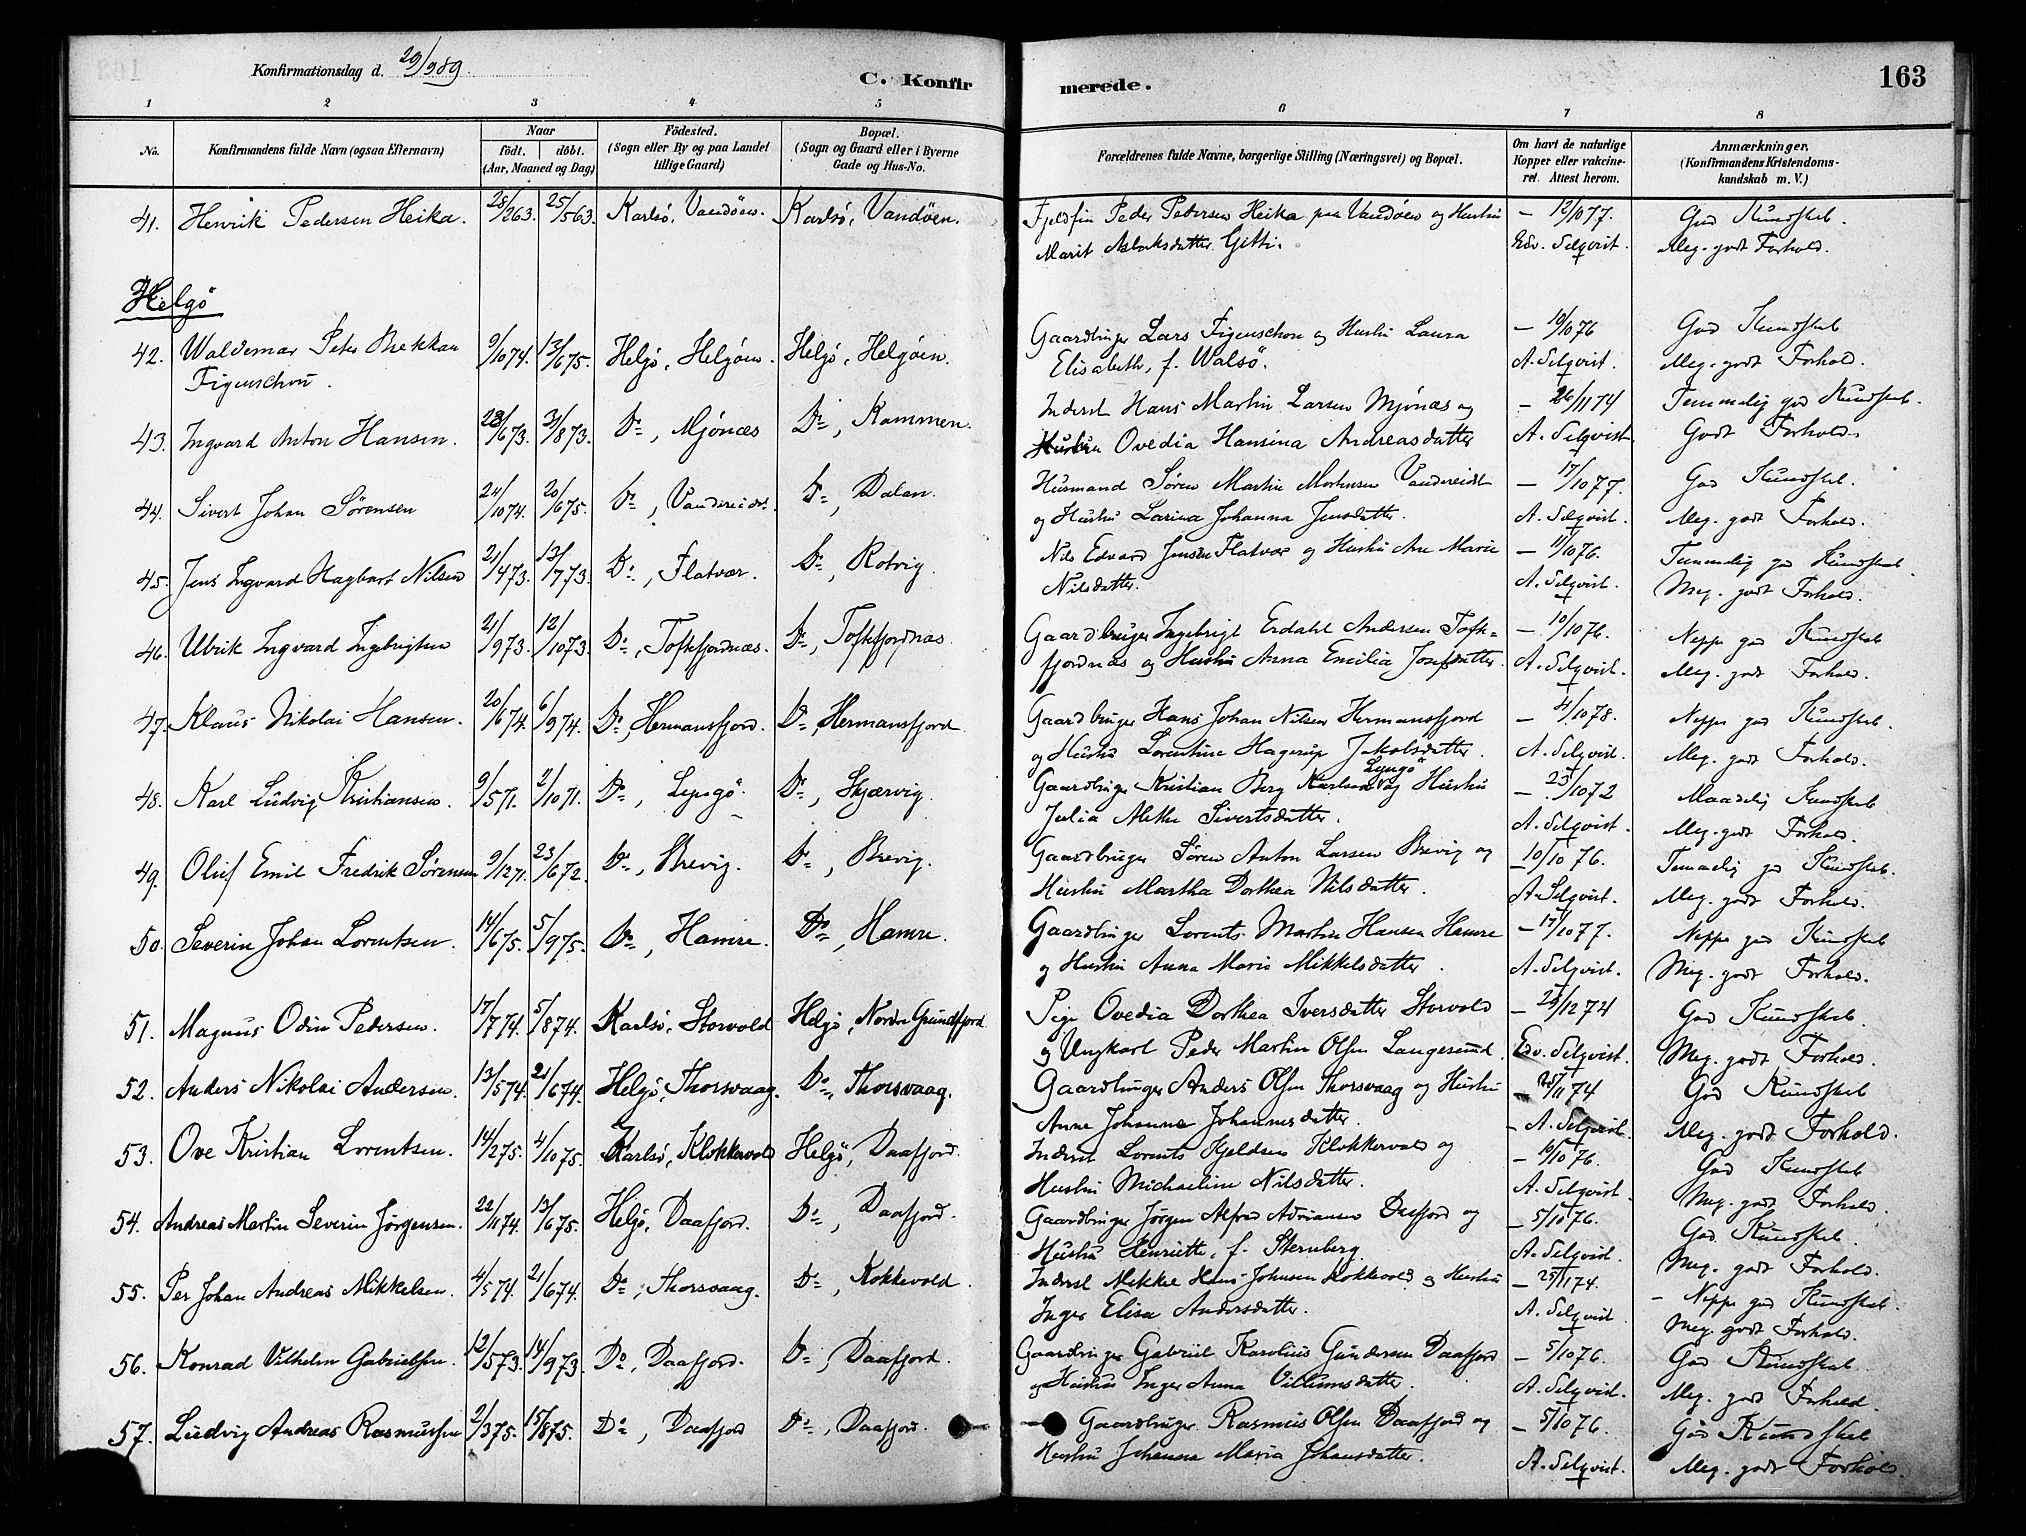 Konfirmationsdag d. 29/9 89
C. Konfirmerede.
163
1 2 3 4 5 6 7 8
No. Konfirmandens fulde Navn (ogsaa Efternavn) Naar födt. döbt. (Aar, Maaned og Dag) Födested. (Sogn eller By og paa Landet tillige Gaard) Bopæl. (Sogn og Gaard eller i Byerne Gade og Hus-No. Forældrenes fulde Navne, borgerlige Stilling (Næringsvei) og Bopæl. Om havt de naturlige Kopper eller vakcineret. Attest herom. Anmærkninger. (Konfirmandens Kristendomskundskab m. V.)
41. Henrik Pedersen Heika. 28/2 63. 25/5 63. Karlsö, Vandöen. Karlsö, Vandöen. Fjeldfin Peder Pedersen Heika paa Vandöen og Hustru – 12/10 77. God Kundskab.
Marit Aslaksdatter Getti. Edv. Selqvist. Meg. godt Forhold.
Helgö
42. Waldemar Peter Brekkan 9/10 74. 13/6 75. Helgö, Helgöen. Helgö, Helgöen. Gaardbruger Lars Figenschou og Hustru Laura – 10/10 76 God Kundskab
Figenschou. Elisabeth, f. Walsö. A. Selqvist. Meg. godt Forhold.
43. Ingvard Anton Hansen. 28/6 73. 31/8 73. Do, Mjönæs Do, Kammen. Inderst Hans Martin Larsen Mjönæs og – 26/11 74 Temmelig god Kundskab.
Hustru Ovedia Hansina Andreasdatter A. Selqvist Godt Forhold.
44. Sivert Johan Sörensen 24/10 74. 20/6 75. Do, Vandereidet. Do, Dalan. Husmand Sören Martin Mortensen Vandereidet – 17/10 77. God Kundskab.
og Hustru Larina Johanna Jensdatter. A. Selqvist. Meg. godt Forhold.
45. Jens Ingvard Hagbart Nilsen 21/4 73. 13/7 73. Do, Flatvær. Do, Rotvig. Nils Edvard Jensen Flatvær og Hustru Ane Marie – 11/10 76. Temmelig god Kundskab.
Nilsdatter. A. Selqvist. Meg. godt Forhold.
46. Ulrik Ingvard Ingebrigtsen 21/9 73. 12/10 73. Do, Tofkfjordnæs. Do, Tofkfjordnæs. Gaardbruger Ingebrigt Erdahl Andersen Tofk= – 10/10 76. Neppe god Kundskab
fjordnæs og Hustru Anna Emilia Josefsdatter. A. Selqvist. Meg. godt Forhold.
47. Klaus Nikolai Hansen. 20/6 74. 6/9 74. Do, Hermansfjord. Do, Hermansfjord. Gaardbruger Hans Johan Nilsen Hermansfjord – 4/10 78. Neppe god Kundskab.
og Hustru Lorentine Hagerup Jakobsdatter. A. Selqvist. Meg. godt Forhold.
48. Karl Ludvig Kristiansen. 9/5 71. 2/10 71. Do, Lyngö. Do, Skjærvig. Gaardbruger Kristian Berg Karlsen Lyngö og Hustru – 23/10 72 Maadelig Kundskab
Julia Methe Sivertsdatter. A. Selqvist. Meg. godt Forhold.
49. Oluf Emil Fredrik Sörensen 9/12 71. 23/6 72. Do, Brevig. Do, Brevig. Gaardbruger Sören Anton Larsen Brevig og – 10/10 76. Temmelig god Kundskab.
Hustru Martha Dorthea Nilsdatter. A. Selqvist. Meg. godt Forhold.
50. Severin Johan Lorentsen. 14/6 75. 5/9 75. Do, Hamre. Do, Hamre. Gaardbruger Lorents Martin Hansen Hamre – 17/10 77. Neppe god Kundskab
og Hustru Anna Maria Mikkelsdatter. A. Selqvist. Meg. godt Forhold.
51. Magnus Odin Pedersen. 17/7 74. 5/8 74. Karlsö, Storvold Helgö, Nordre Grundfjord Pige Ovedia Dorthea Iversdatter Storvold – 29/12 74 God Kundskab.
og Ungkarl Peder Martin Olsen Langesund. Edv. Selqvist. Meg. godt Forhold.
52. Anders Nikolai Andersen. 13/5 74. 21/6 74. Helgö, Thorsvaag. Do, Thorsvaag. Gaardbruger Anders Olsen Thorsvaag og Hustru – 25/11 74 God Kundskab
Anne Johanna Johannesdatter. A. Selqvist. Meg. godt Forhold.
53. Ove Kristian Lorentsen. 14/2 75. 4/10 75. Karlsö, Klokkervold Helgö, Daafjord. Inderst Lorents Hjeldsen Klokkervold og – 10/10 76. God Kundskab
Hustru Michaeline Nilsdatter. A. Selqvist. Meg. godt Forhold.
54. Andreas Martin Severin Jörgensen. 22/11 74. 13/6 75. Helgö, Daafjord. Do, Daafjord. Gaardbruger Jörgen Alfred Adriansen Daafjord og – 5/10 76. God Kundskab.
Hustru Henriette, f. Sternberg. A. Selqvist. Meg. godt Forhold.
55. Per Johan Andreas Mikkelsen. 4/5 74. 21/6 74. Do, Thorsvaag. Do, Kokkevold. Inderst Mikkel Hans Johnsen Kokkvold og Hustru – 25/11 74. – Neppe god Kundskab.
Inger Elisa Andersdatter. A. Selqvist Meg. godt Forhold.
56. Konrad Vilhelm Gabrielsen. 12/5 73. 14/9 73. Do, Daafjord. Do, Daafjord. Gaardbruger Gabriel Karolius Gundersen Daafjord – 5/10 76. God Kundskab.
og Hustru Inger Anna Villumsdatter. A. Selqvist. Meg. godt Forhold.
57. Ludvig Andreas Rasmussen 2/3 75. 15/8 75. Do, Daafjord Do, Daafjord. Gaardbruger Rasmus Olsen Daafjord og – 5/10 76. God Kundskab
Hustru Johanna Maria Johansdatter. A. Selqvist. Meg. godt Forhold.